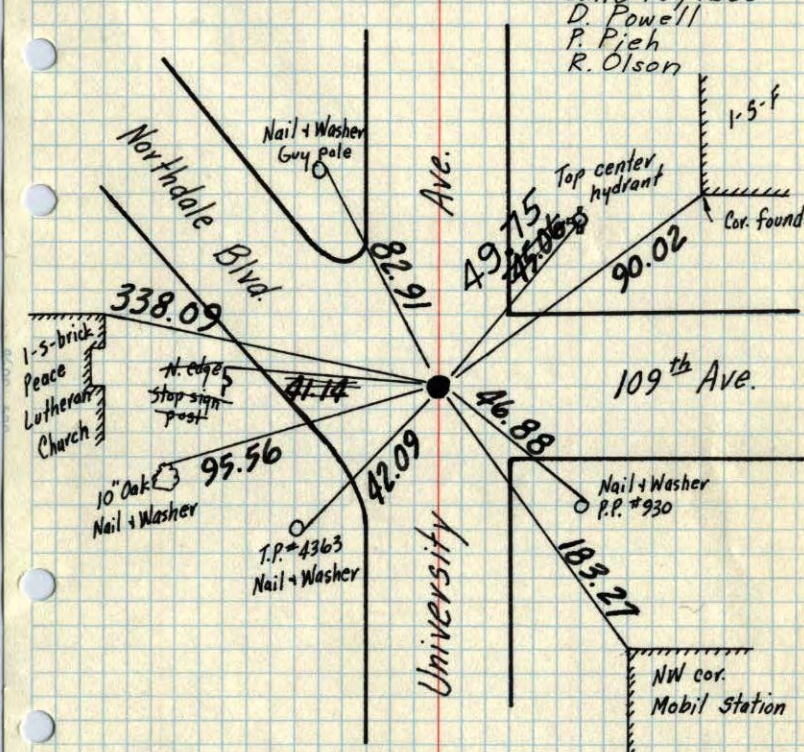 D. Powell
P. Pieh
R. Olson
1-S-F
Nail & Washer
Guy pole
Northdale Blvd.
Ave.
Top center
hydrant
Cor. found
49.75
45.06
90.02
82.91
338.09
1-S-brick
Peace
Lutheran
Church
N. edge
Stop sign
post
41.14
109th Ave.
46.88
95.56
42.09
10" Oak
Nail & Washer
Nail & Washer
P.P. #930
T.P. #4363
Nail & Washer
183.27
University
NW cor.
Mobil Station